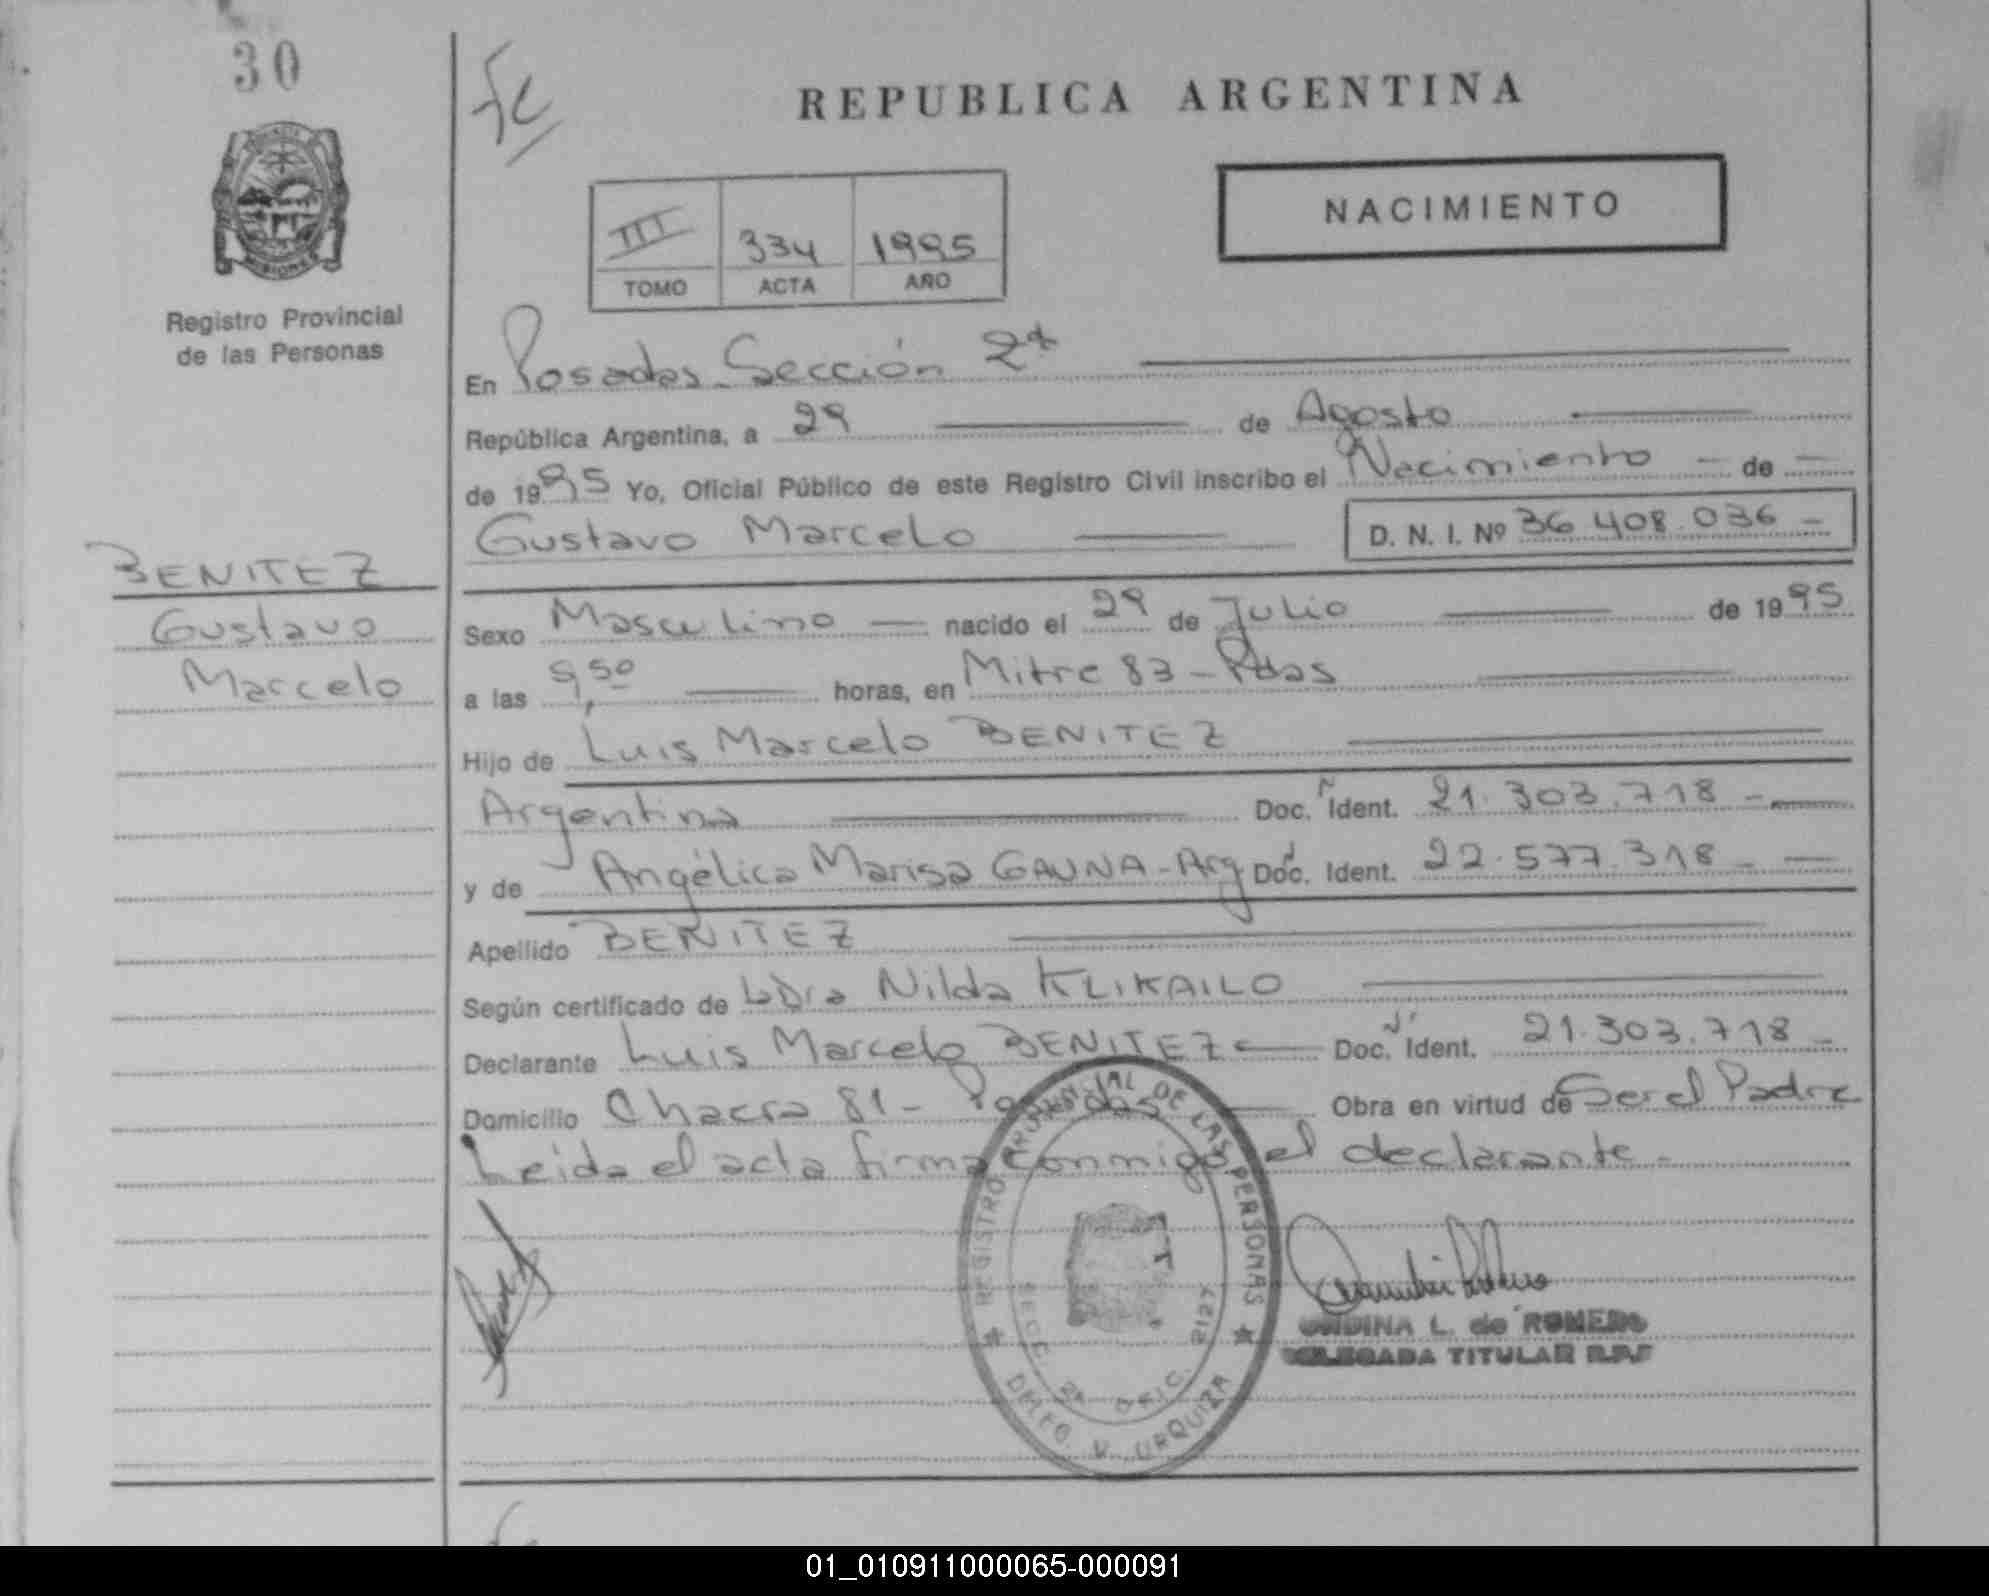 30
fc
REPUBLICA ARGENTINA
NACIMIENTO
III 334 1995
TOMO ACTA AÑO
MISIONES
Registro Provincial
de las Personas
En Posadas Sección 2ª
República Argentina, a 29 de Agosto
de 1995 Yo, Oficial Público de este Registro Civil inscribo el Nacimiento - de -
Gustavo Marcelo D. N. I. Nº 36.408.036 -
BENITEZ
Gustavo
Marcelo
Sexo Masculino nacido el 29 de Julio de 1995
a las 9,50 horas, en Mitre 83 - Pdas
Hijo de Luis Marcelo BENITEZ
Argentina Doc. Ident. 21.303.718 -
y de Angélica Marisa GAUNA - Arg Doc. Ident. 22.577.318 -
Apellido BENITEZ
Según certificado de la Dra Nilda KLIKAILO
Declarante Luis Marcelo BENITEZ Doc. Ident. 21.303.718 -
Domicilio Chacra 81 - Posadas Obra en virtud de Ser el Padre
Leida el acta firma conmigo el declarante -
REGISTRO PROVINCIAL DE LAS PERSONAS
SECC. 2ª OFIC. 2127
DPTO. V. URQUIZA
ONDINA L. de ROMERO
DELEGADA TITULAR R.P.P
01_010911000065-000091